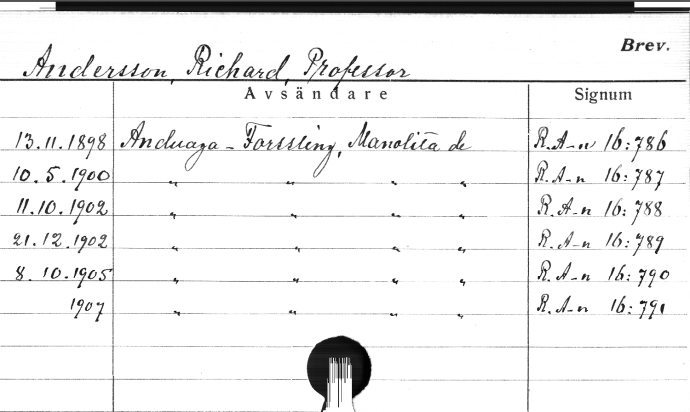 Brev.
Andersson, Richard, Professor
Avsändare Signum
13.11.1898 Anduaga - Forssling, Manolita de R. A-n 16:786
10.5.1900 " " " " R. A-n 16:787
11.10.1902 " " " " R. A-n 16:788
21.12.1902 " " " " R. A-n 16:789
8.10.1905 " " " " R. A-n 16:790
1907 " " " " R. A-n 16:791